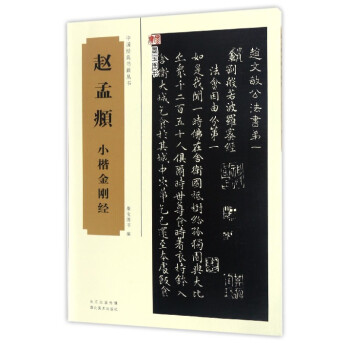 中国经典书画丛书
赵孟頫
小楷金刚经
墨宝斋
趙文敏公法書第一
金剛般若波羅蜜經
法會因由分第一
如是我聞一時佛在舍衛國祇樹給孤獨園與大比
丘衆千二百五十人俱爾時世尊食時著衣持鉢入
舍衛大城乞食於其城中次第乞已還至本處飯食
湖北美术出版社